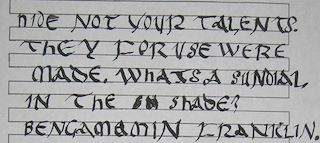 hide not your talents.
They for use were
made. Whats a sundial,
in the shade?
Bengamamin Franklin.